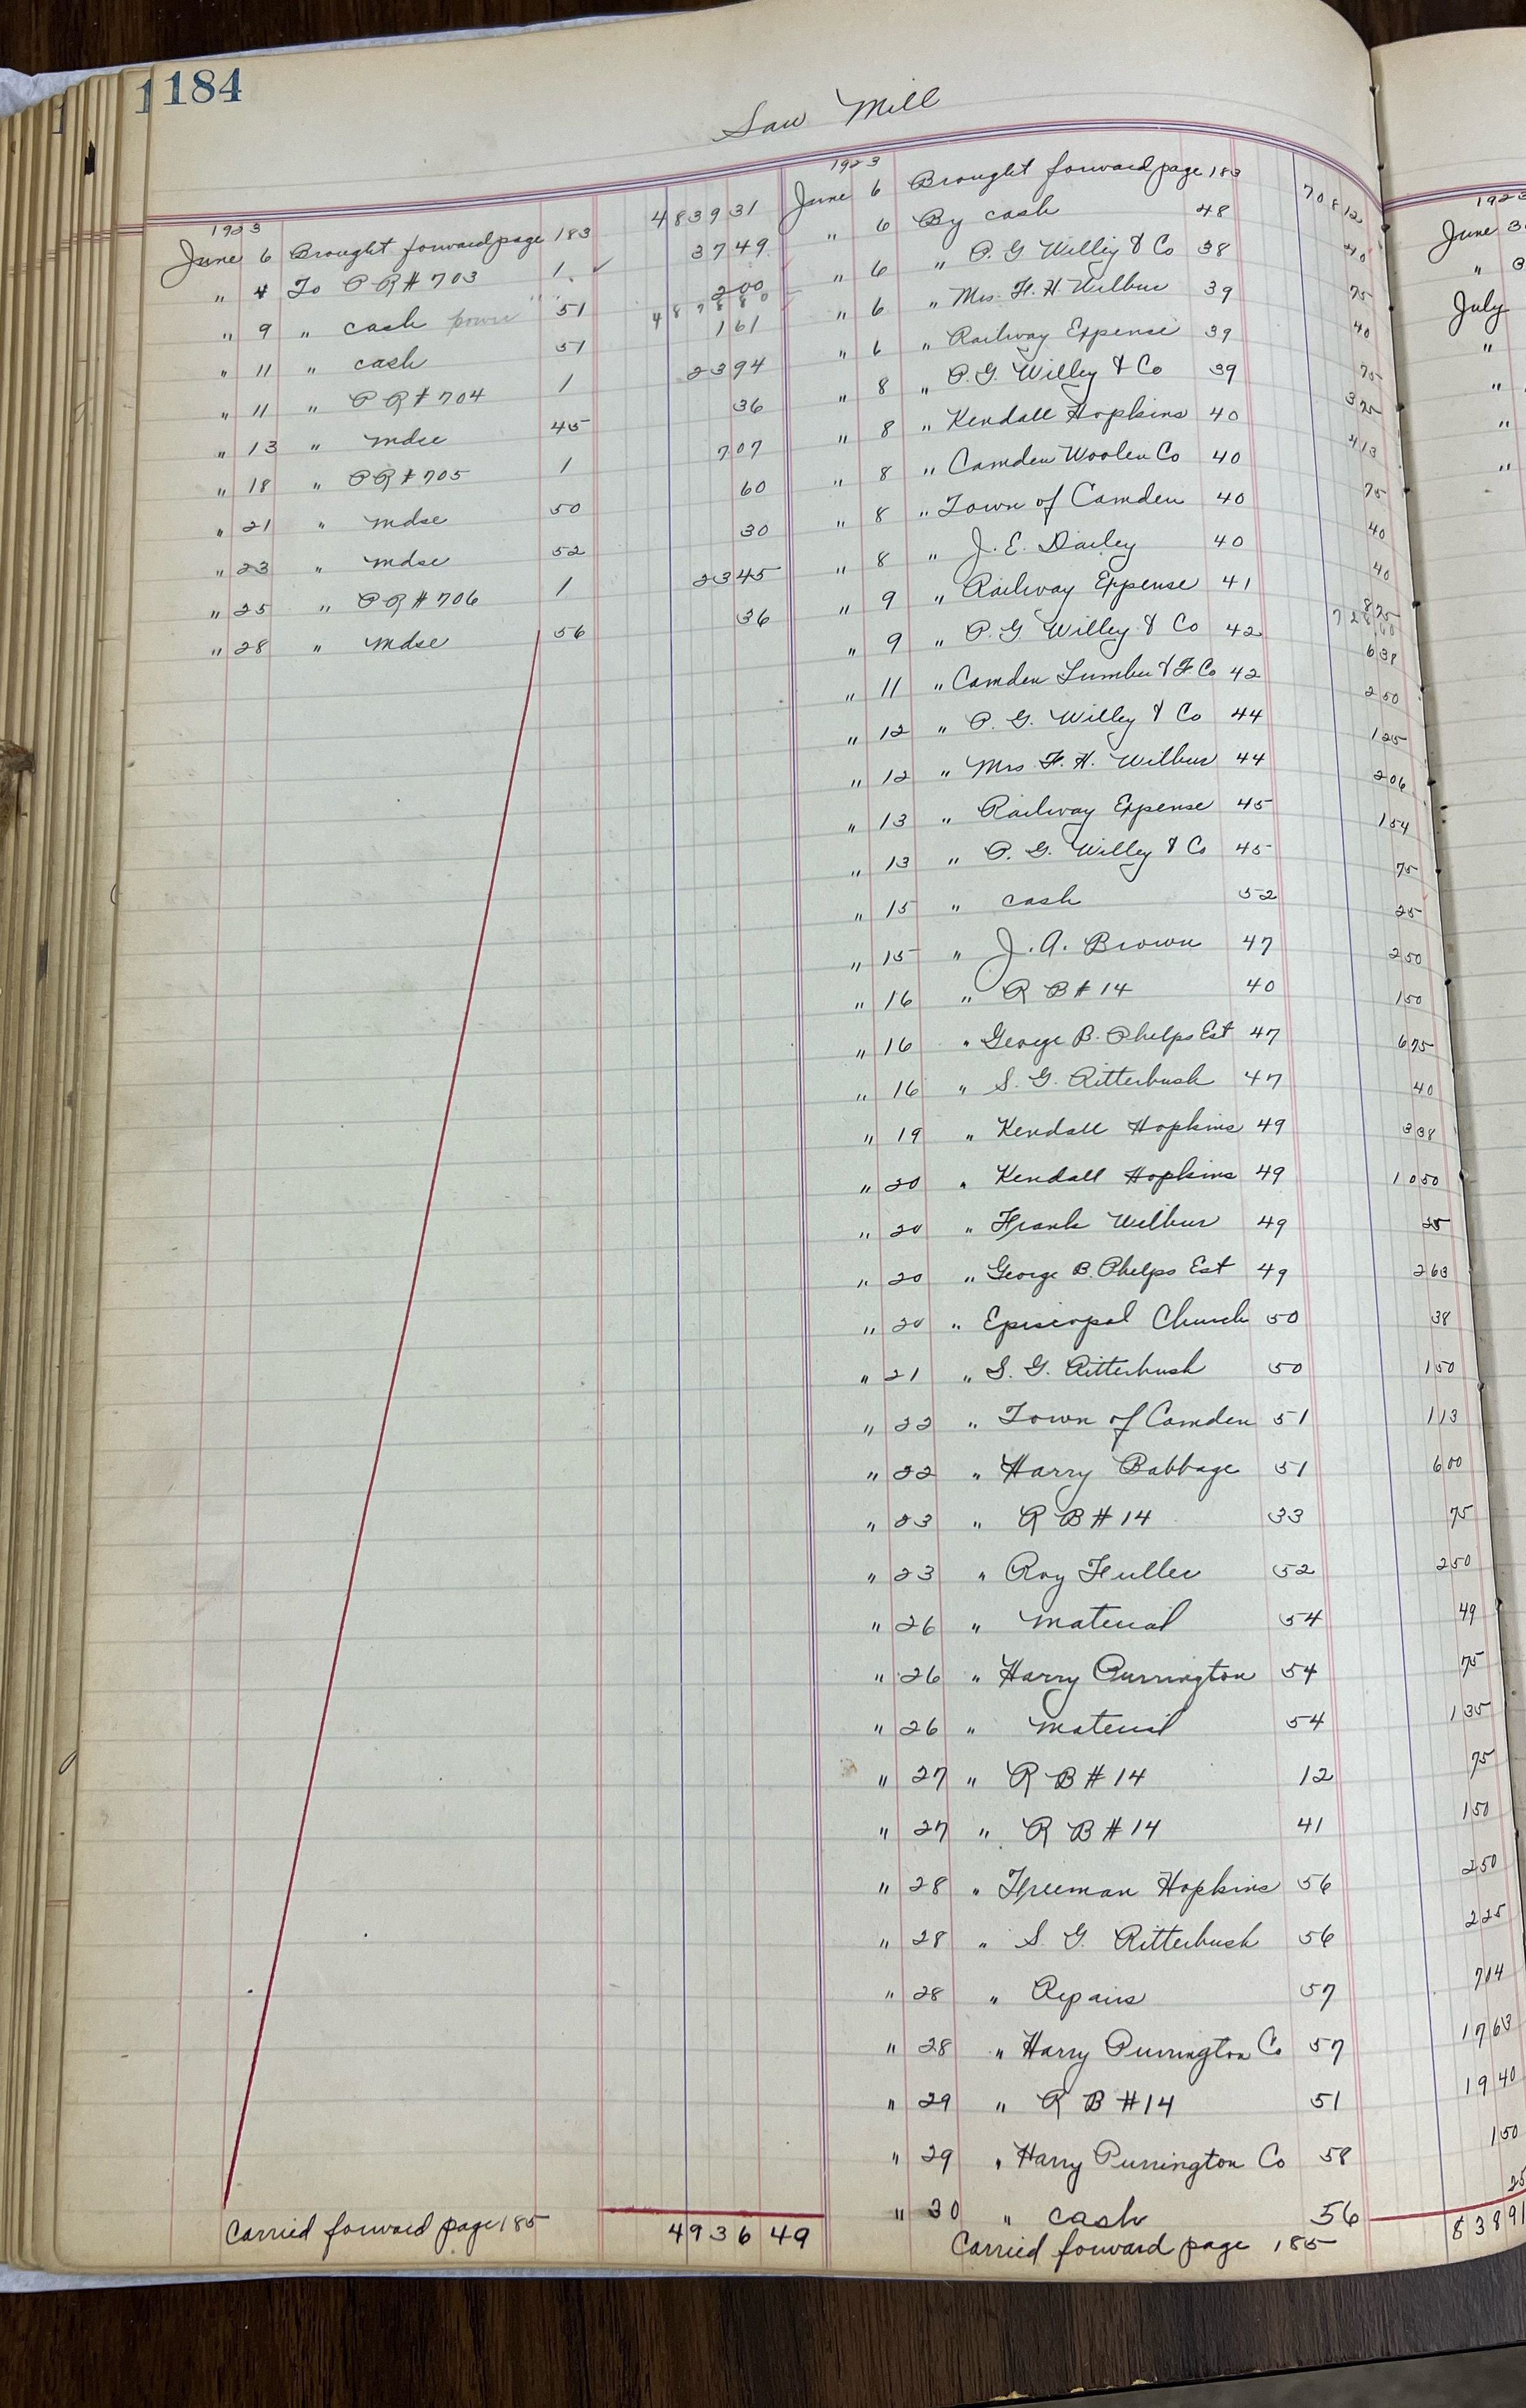 184
Saw Mill
1923
June 6 Brought forward page 183 4839 31
" 4 To PR # 703 1 ✓ 37 49
" 9 " cash 51 2 00
4878 80
" 11 " cash 51 1 61
" 11 " PR # 704 1 23 94
" 13 " mdse 45 36
" 18 " PR # 705 1 7 07
" 21 " mdse 50 60
" 23 " mdse 52 30
" 25 " PR # 706 1 23 45
" 28 " mdse 56 36
Carried forward page 185 4936 49
1923
June 6 Brought forward page 183 708 12
" 6 By cash 48 40
" 6 " P. G. Willey & Co 38 75
" 6 " Mrs. F. H. Wilbur 39 40
" 6 " Railway Expense 39 75
" 8 " P. G. Willey & Co 39 3 75
" 8 " Kendall Hopkins 40 4 13
" 8 " Camden Woolen Co 40 75
" 8 " Town of Camden 40 40
" 8 " J. E. Dailey 40 40
" 9 " Railway Expense 41 8 75
728 60
" 9 " P. G. Willey & Co 42 6 38
" 11 " Camden Lumber & F. Co 42 2 50
" 12 " P. G. Willey & Co 44 1 25
" 12 " Mrs F. H. Wilbur 44 2 06
" 13 " Railway Expense 45 1 54
" 13 " P. G. Willey & Co 45 75
" 15 " cash 52 25
" 15 " J. A. Brown 47 2 50
" 16 " R B # 14 40 1 50
" 16 " George B. Phelps Est 47 6 75
" 16 " S. G. Ritterbush 47 40
" 19 " Kendall Hopkins 49 3 38
" 20 " Kendall Hopkins 49 10 50
" 20 " Frank Wilbur 49 25
" 20 " George B. Phelps Est 49 2 63
" 20 " Episcopal Church 50 38
" 21 " S. G. Ritterbush 50 1 50
" 22 " Town of Camden 51 1 13
" 22 " Harry Babbage 51 6 00
" 23 " R B # 14 33 75
" 23 " Roy Fuller 52 2 50
" 26 " material 54 49
" 26 " Harry Purrington 54 75
" 26 " material 54 1 35
" 27 " R B # 14 12 75
" 27 " R B # 14 41 1 50
" 28 " Freeman Hopkins 56 2 50
" 28 " S. G. Ritterbush 56 2 25
" 28 " Repairs 57 7 04
" 28 " Harry Purrington Co 57 17 63
" 29 " R B # 14 51 19 40
" 29 " Harry Purrington Co 58 1 50
" 30 " cash 56 25
Carried forward page 185 838 91
1923
June 3
" 3
July
"
"
"
"